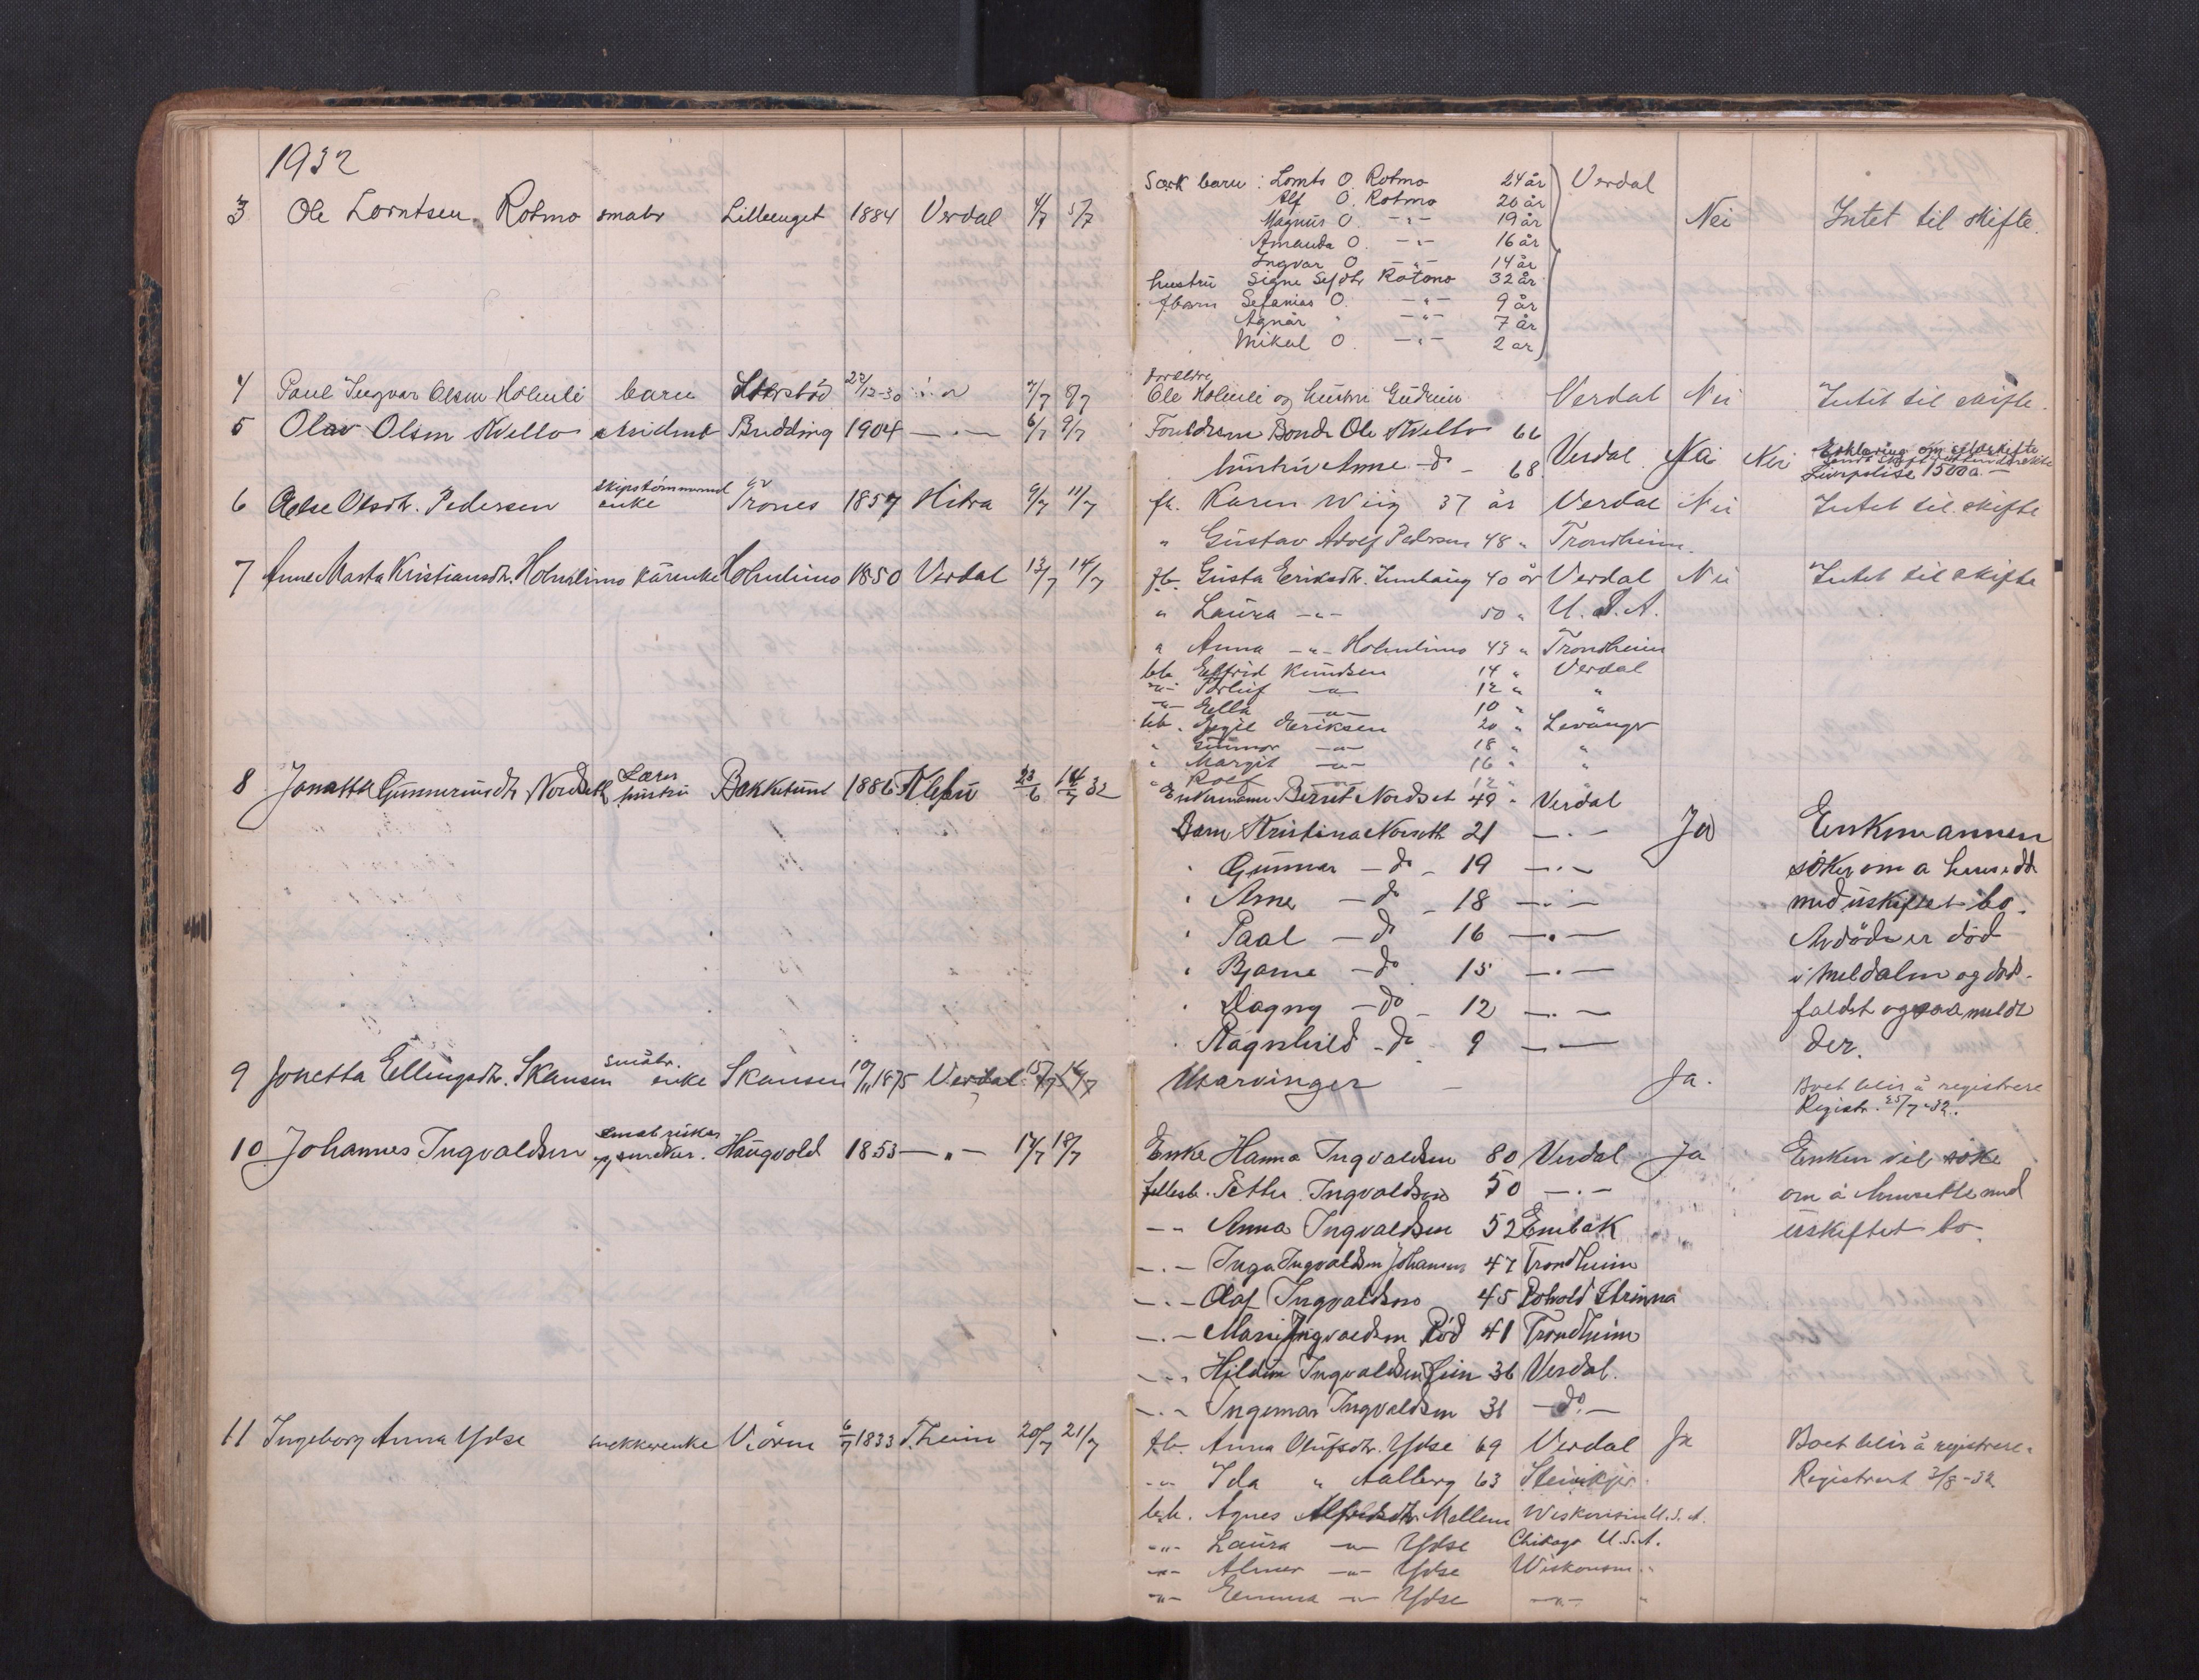 1932
3 Ole Lorntsen Rotmo småbr Lilleenget 1884 Verdal 4/7 5/7
Særk barn : Lornts O. Rotmo 24 år Verdal
Alf O. Rotmo 20 år
Magnus O. -"- 19 år Nei Intet til skifte.
Amanda O. -"- 16 år
Ingvar O. -"- 14 år
hustru Signe Sefdtr Rotmo 32 år
fbarn Sefanias O. -"- 9 år
Agnar " -"- 7 år
Mikal O. -"- 2 år
4 Paul Ingvar Olsen Holmli barn 7/7 8/7
Foreldre
Ole Holmli og hustru Gudrun Verdal Nei Intet til skifte.
5 Olav Olsen Kvello Budding 1904 -"- 6/7 9/7
Foreldrene Bonde Ole Kvello 66
hustru Anne -do- 68 Verdal Nei Nei
Livspolise 1500
6 Olsdtr. Pedersen enke Trones 1857 Hitra 9/7 11/7
fb. Karen Wiig 37 år Verdal Nei Intet til skifte
" Gustav Adolf Pedersen 48 " Trondheim.
7 Anne Marta Kristiansdtr. Holmlimo kårenke Holmlimo 1850 Verdal 13/7 14/7
fb. Gusta Eriksdtr. Innhaug 40 år Verdal Nei Intet til skifte
" Laura -"- 50 " U.S.A.
" Anna -"- Holmlimo 43 " Trondheim
bb. Elfrid Knudsen 14 " Verdal
-"- Torleif -"- 12 " "
-"- Ella -"- 10 "
bb. Egil Eriksen 20 " Levanger
" Gunnar -"- 18 " "
" Margit -"- 16 " "
" Rolf 12 "
8 Jonetta Gunneriusdtr Nordseth Lærer hustru Bakketun 1886 Klæbu 23/6 14/7 32
Enkemann Bernt Nordset 49 " Verdal
Barn Kristina Norseth 21 -"- Ja Enkemannen
" Gunnar -do- 19 -"- søker om a hensidde
" Arne -do- 18 -"- med uskiftet bo.
" Paal -do- 16 -"- Avdøde er død
" Bjarne -do- 15 -"- i Meldalen og døds-
" Dagny -do- 12 -"- faldet ogsaa meldt
" Ragnhild -do- 9 -"- der.
9 Jonetta Ellingsdtr. Skansen småbr. enke Skansen 10/11 1875 Verdal 15/7 16/7
Utarvinger - Ja. Boet blir å registrere
Registr. 25/7-32.
10 Johannes Ingvaldsen småbruker og snekker. Haugvold 1853 -"- 17/7 18/7
Enke Hanna Ingvaldsen 80 Verdal Ja Enken vil søke
fellesb. Petter Ingvaldsen 50 -"- om å hensitte med
-"- Anna Ingvaldsen 52 uskiftet bo.
-"- Inga Ingvaldsen Johansen 47 Trondheim
-"- Olaf Ingvaldsen 45 Strinna
-"- Marie Ingvaldsen Rød 41 Trondheim
-"- Ingvaldsen Lein 36 Verdal.
-"- Ingemar Ingvaldsen 31 -do-
11 Ingeborg Anna Ydse snekkerenke Viøren 6/7 1833 Theim 20/7 21/7
fb. Anna Olufsdtr. Ydse 69 Verdal Ja Boet blir å registrere.
-"- Ida " Aalberg 63 Steinkjer. Registrert 3/8-32
bb. Agnes Alfredsdtr. Mellem Wiskonsin U.S.A.
-"- Laura -"- Ydse Chikago U.S.A.
-"- Almer -"- Ydse Wiskonsin "
-"- Emma -"- Ydse -"- "